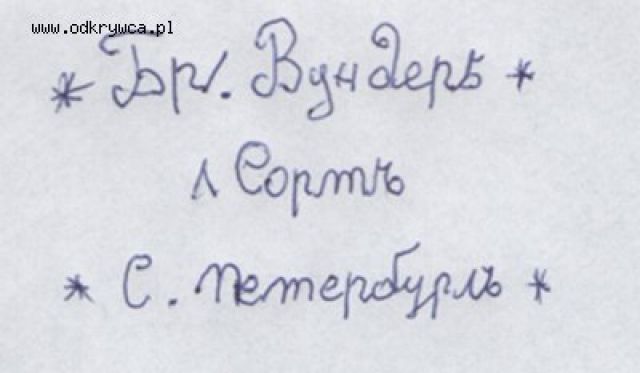 www.odkrywca.pl
* Бр. Вундеръ *
1 Сортъ
* С. Петербургъ *